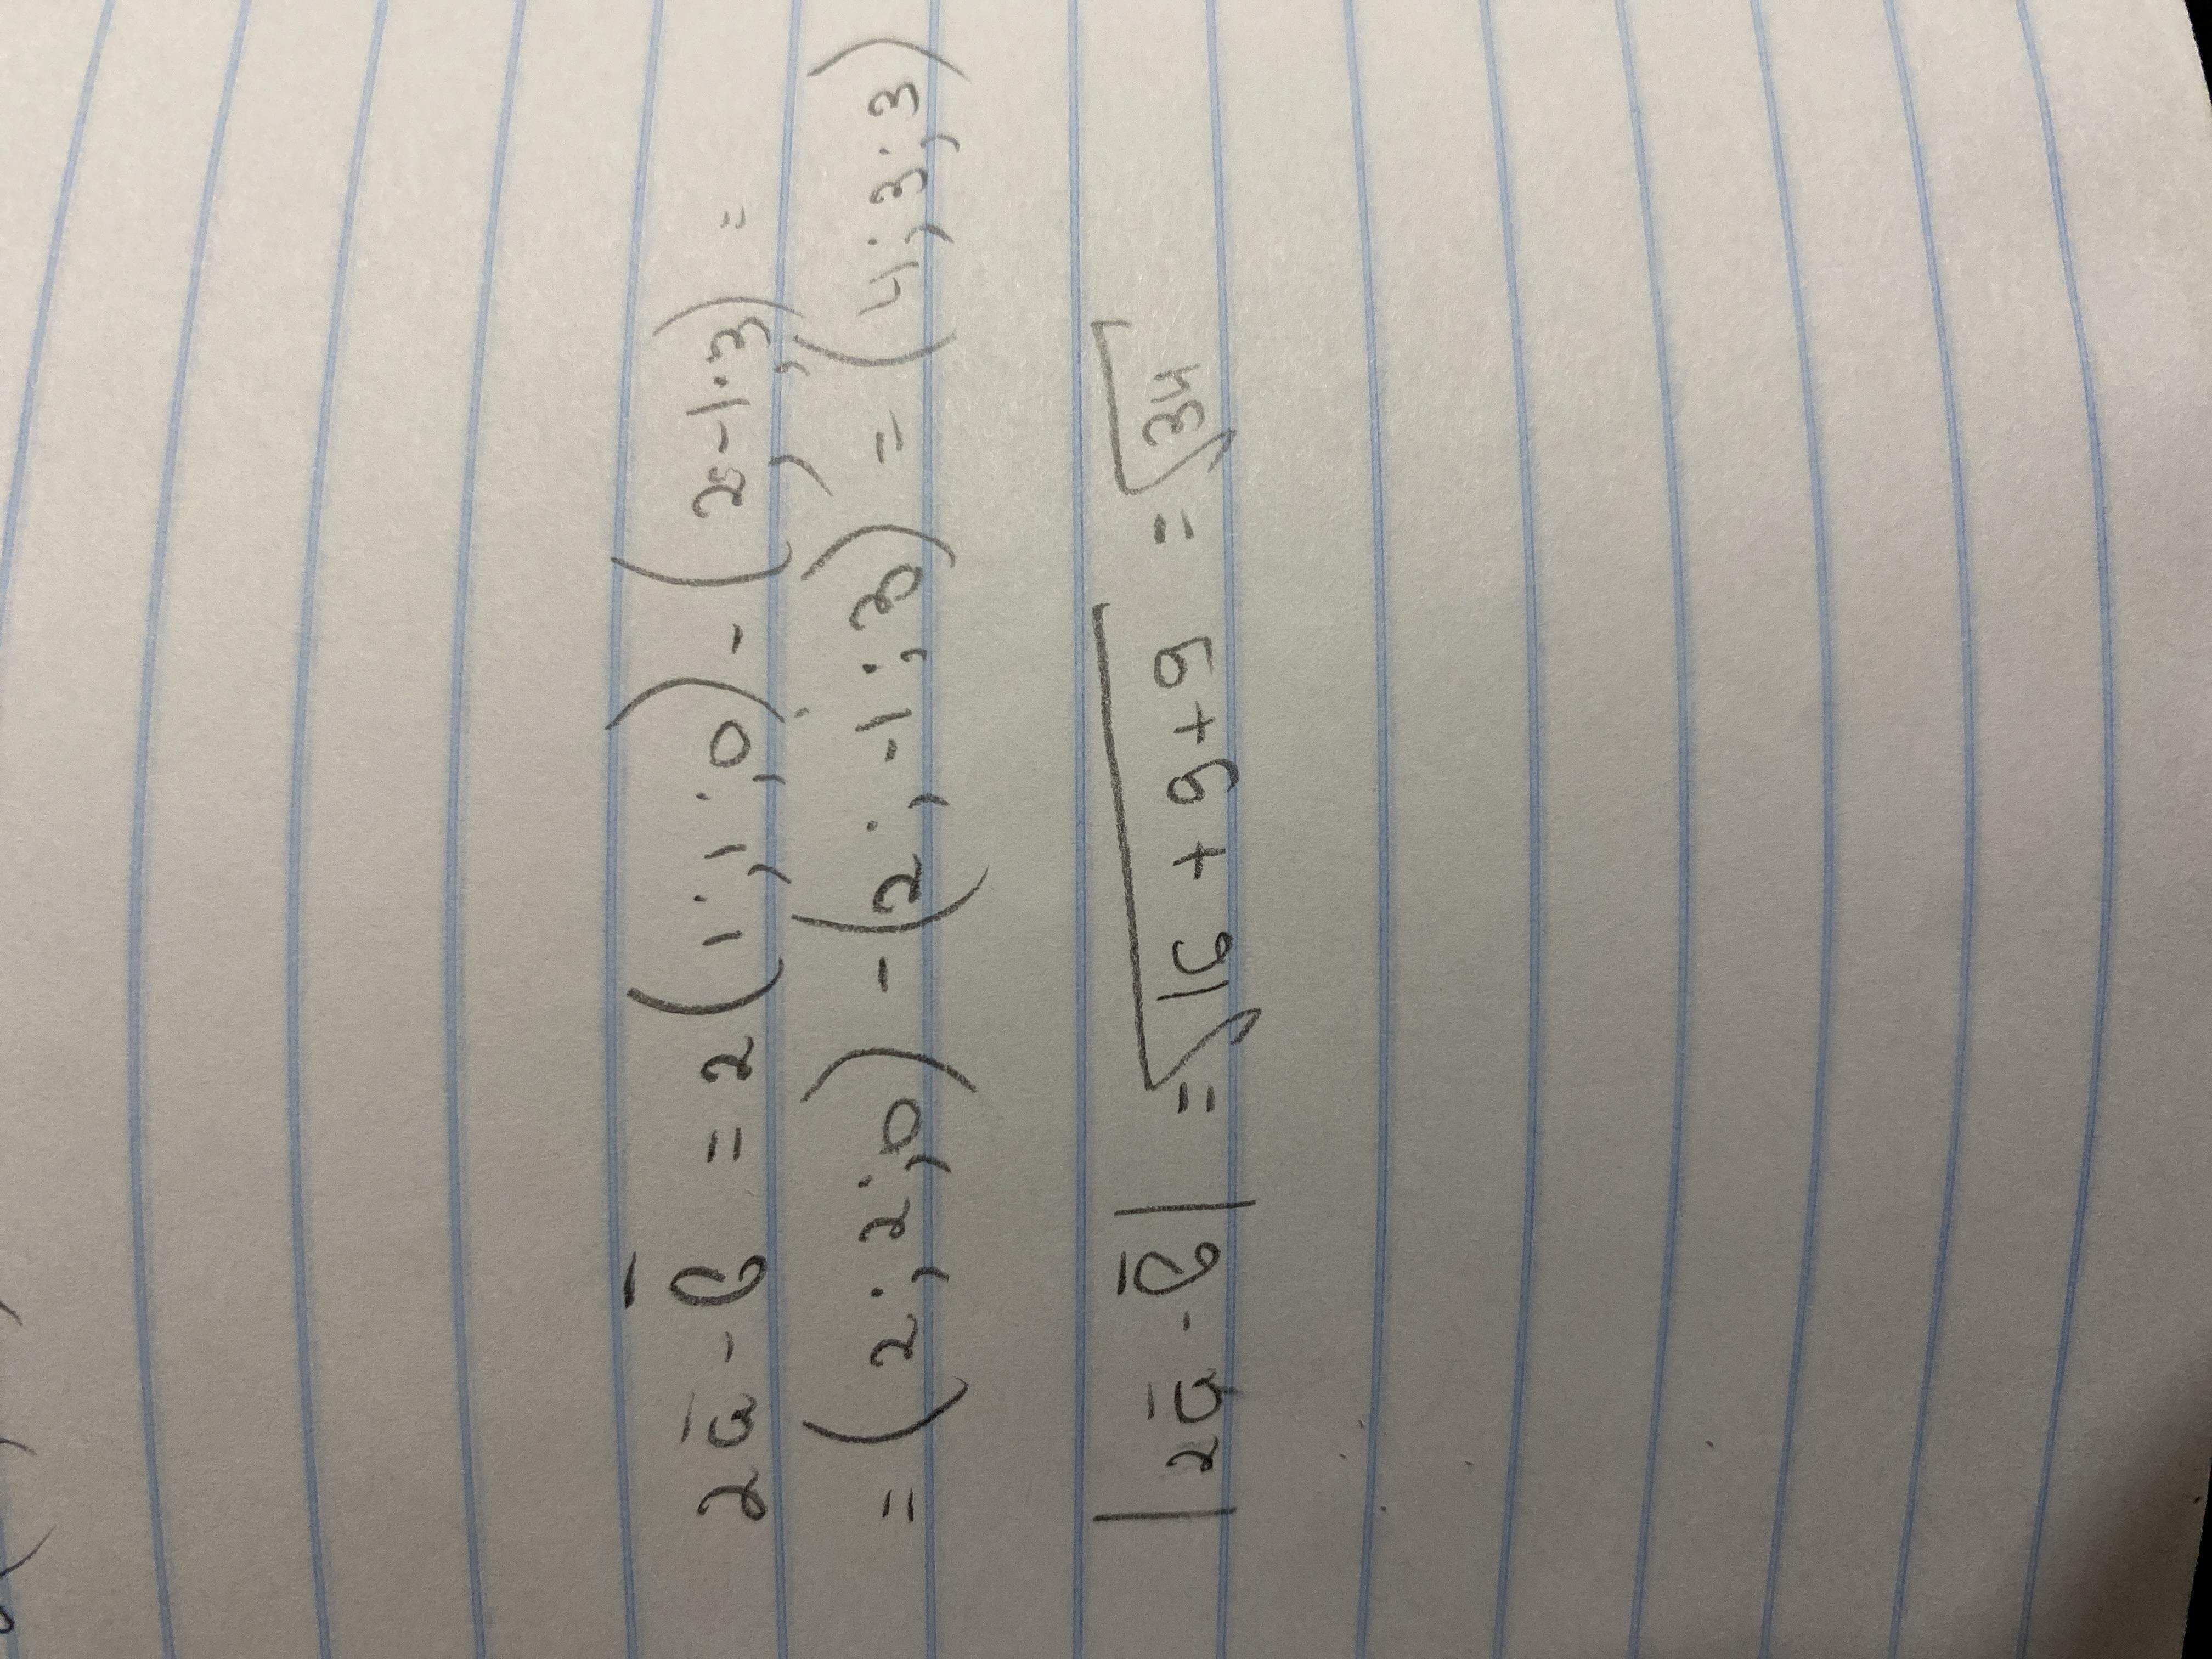 2a̅ - b̅ = 2(1;1;0) - (2;-1;3) =
= (2;2;0) - (2;-1;3) = (4;3;3)
|2a̅ - b̅| = √16 + 9 + 9 = √34